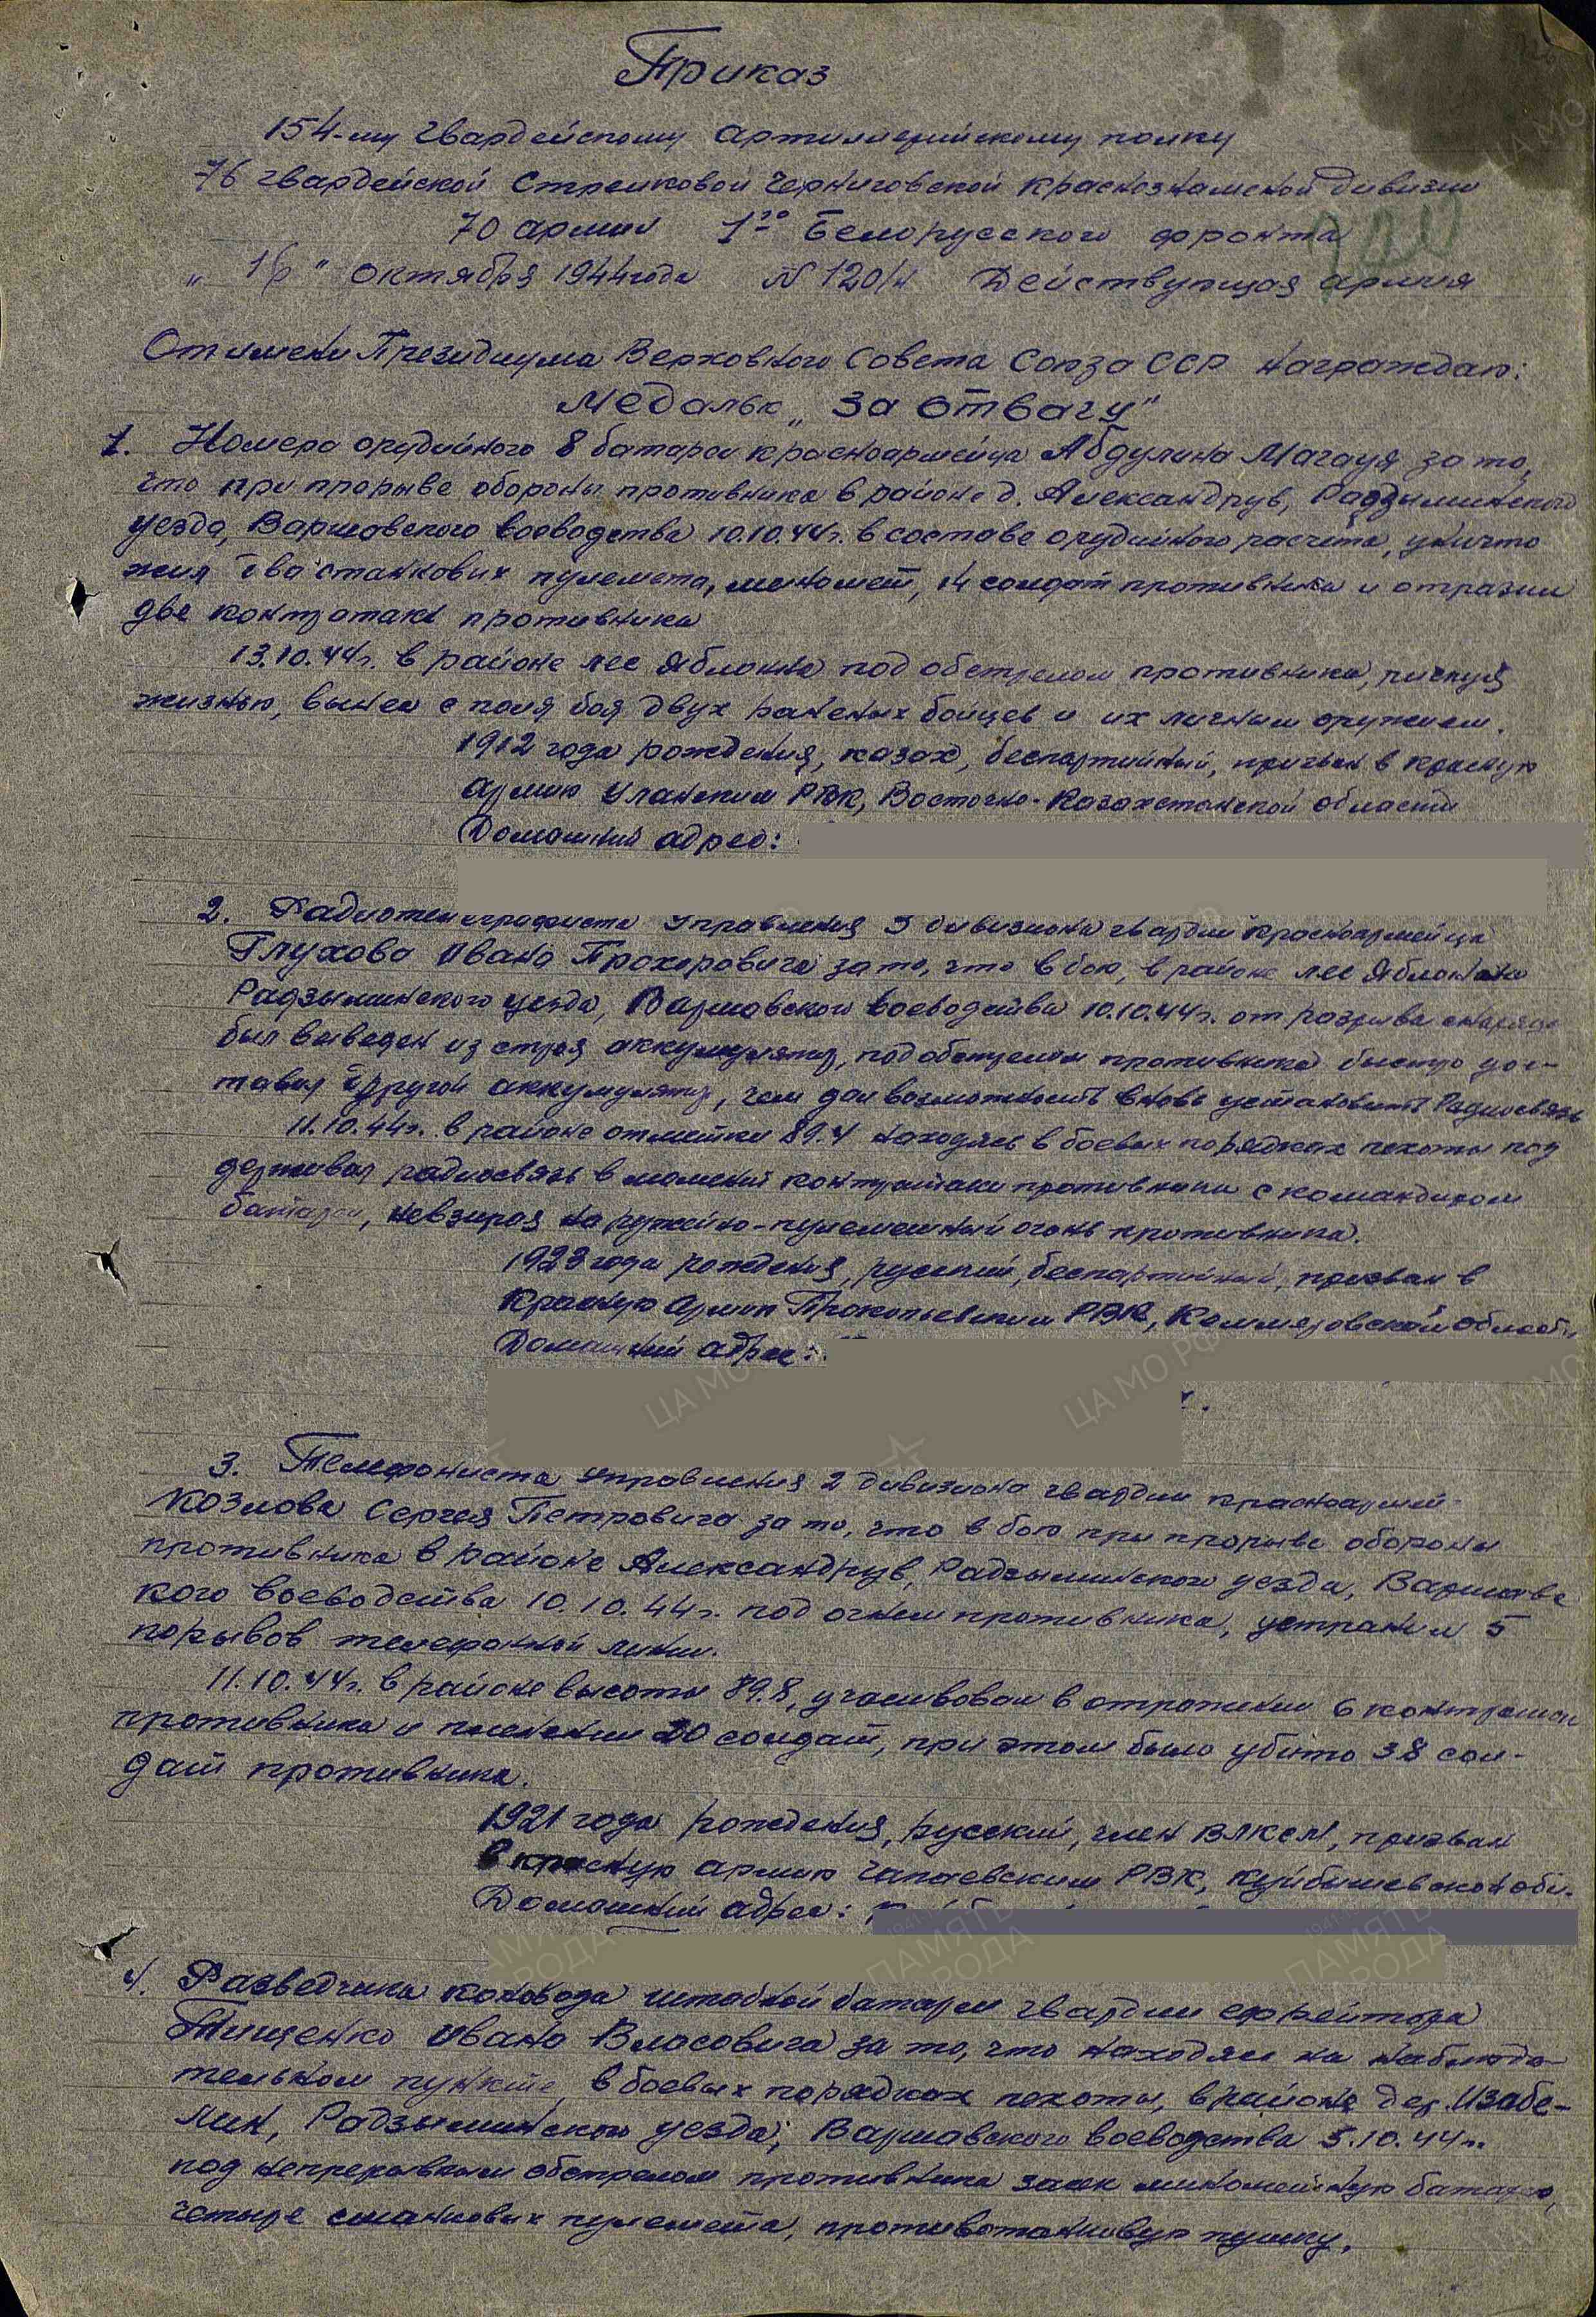 Приказ
154-му гвардейскому артиллерийскому полку
76 гвардейской стрелковой Черниговской краснознаменной дивизии
70 армии 1го Белорусского фронта
"16" октября 1944 года N 120/н Действующая армия
От имени Президиума Верховного Совета Союза ССР награждаю:
Медалью "За отвагу"
1. Номера орудийного 8 батареи красноармейца Абдулина Магауя за то,
что при прорыве обороны противника в районе д. Александрув, Радзыминского
уезда, Варшавского воеводства 10.10.44г. в составе орудийного расчета, уничто
жил два станковых пулемета, миномет, 14 солдат противника и отразил
две контратаки противника
13.10.44г. в районе лес Яблонна под обстрелом противника, рискуя
жизнью, вынес с поля боя двух раненых бойцов и их личным оружием.
1912 года рождения, казах, беспартийный, призван в красную
армию Уланским РВК, Восточно-Казахстанской области
Домашний адрес:
2. Радиотелеграфиста управления 3 дивизиона гвардии красноармейца
Глухова Ивана Прохоровича за то, что в бою, в районе лес Яблонна
Радзыминского уезда, Варшавского воеводства 10.10.44г. от разрыва снаряда
был выведен из строя аккумулятор, под обстрелом противника быстро дос-
тавил другой аккумулятор, чем дал возможность вновь установить Радиосвязь
11.10.44г. в районе отметки 89.4 находясь в боевых порядках пехоты под
держивал радиосвязь в момент контратаки противника с командиром
батареи, невзирая на ружейно-пулеметный огонь противника.
1923 года рождения, русский, беспартийный, призван в
Красную Армию Прокопьевским РВК, Кемеровской области
Домашний адрес:
3. Телефониста управления 2 дивизиона гвардии красноармей-
Козлова Сергея Петровича за то, что в бою при прорыве обороны
противника в районе Александрув, Радзыминского уезда, Варшавс
кого воеводства 10.10.44г. под огнем противника, устранил 5
порывов телефонной линии.
11.10.44г. в районе высоты 89.8, участвовал в отражении 6 контратак
противника и пленении 20 солдат, при этом было убито 38 сол-
дат противника.
1921 года рождения, русский, член ВЛКСМ, призван
в красную армию Чапаевским РВК, Куйбышевской обл.
Домашний адрес:
4. Разведчика коновода штабной батареи гвардии ефрейтора
Тищенко Ивана Власовича за то, что находясь на наблюда-
тельном пункте, в боевых порядках пехоты, в районе дер. Изабе-
лин, Радзыминского уезда, Варшавского воеводства 5.10.44г.
под непрерывным обстрелом противника засек минометную батарею,
четыре станковых пулемета, противотанковую пушку.